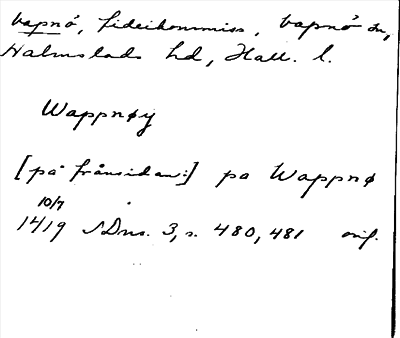 Vapnö, fideikommiss, Vapnö sn,
Halmstads hd, Hall. l.
Wappnøy
[på frånsidan:] pa Wappnø
10/7
1419 SDns. 3, s. 480, 481 orig.